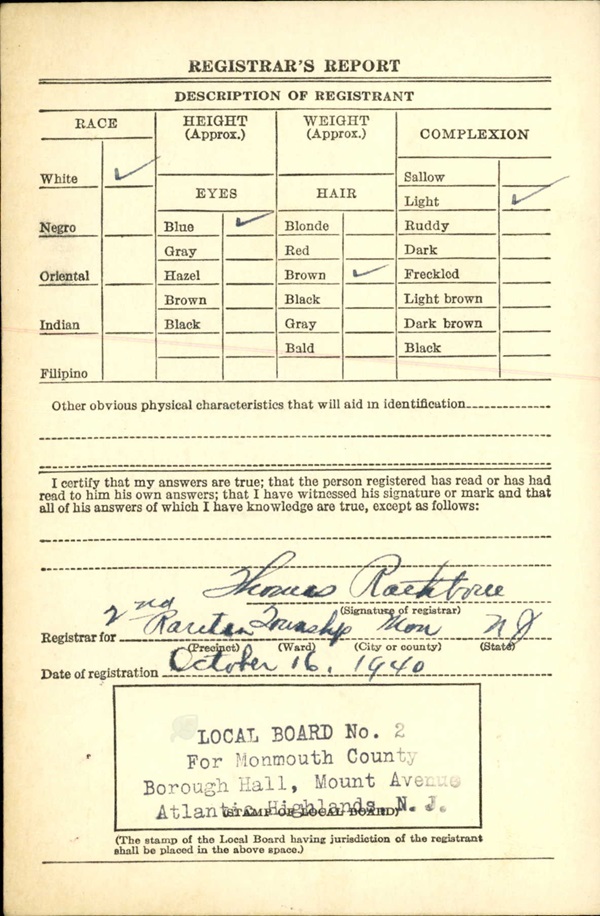 REGISTRAR'S REPORT
DESCRIPTION OF REGISTRANT
RACE
HEIGHT
(Approx.)
WEIGHT
(Approx.)
COMPLEXION
White ✓
Negro
Oriental
Indian
Filipino
EYES
Blue ✓
Gray
Hazel
Brown
Black
HAIR
Blonde
Red
Brown ✓
Black
Gray
Bald
Sallow
Light ✓
Ruddy
Dark
Freckled
Light brown
Dark brown
Black
Other obvious physical characteristics that will aid in identification
I certify that my answers are true; that the person registered has read or has had
read to him his own answers; that I have witnessed his signature or mark and that
all of his answers of which I have knowledge are true, except as follows:
Thomas Rathbone
(Signature of registrar)
Registrar for 2nd Raritan Township Mon NJ
(Precinct) (Ward) (City or county) (State)
Date of registration October 16, 1940
LOCAL BOARD No. 2
For Monmouth County
Borough Hall, Mount Avenue
Atlantic Highlands, N. J.
(STAMP OF LOCAL BOARD)
(The stamp of the Local Board having jurisdiction of the registrant
shall be placed in the above space.)